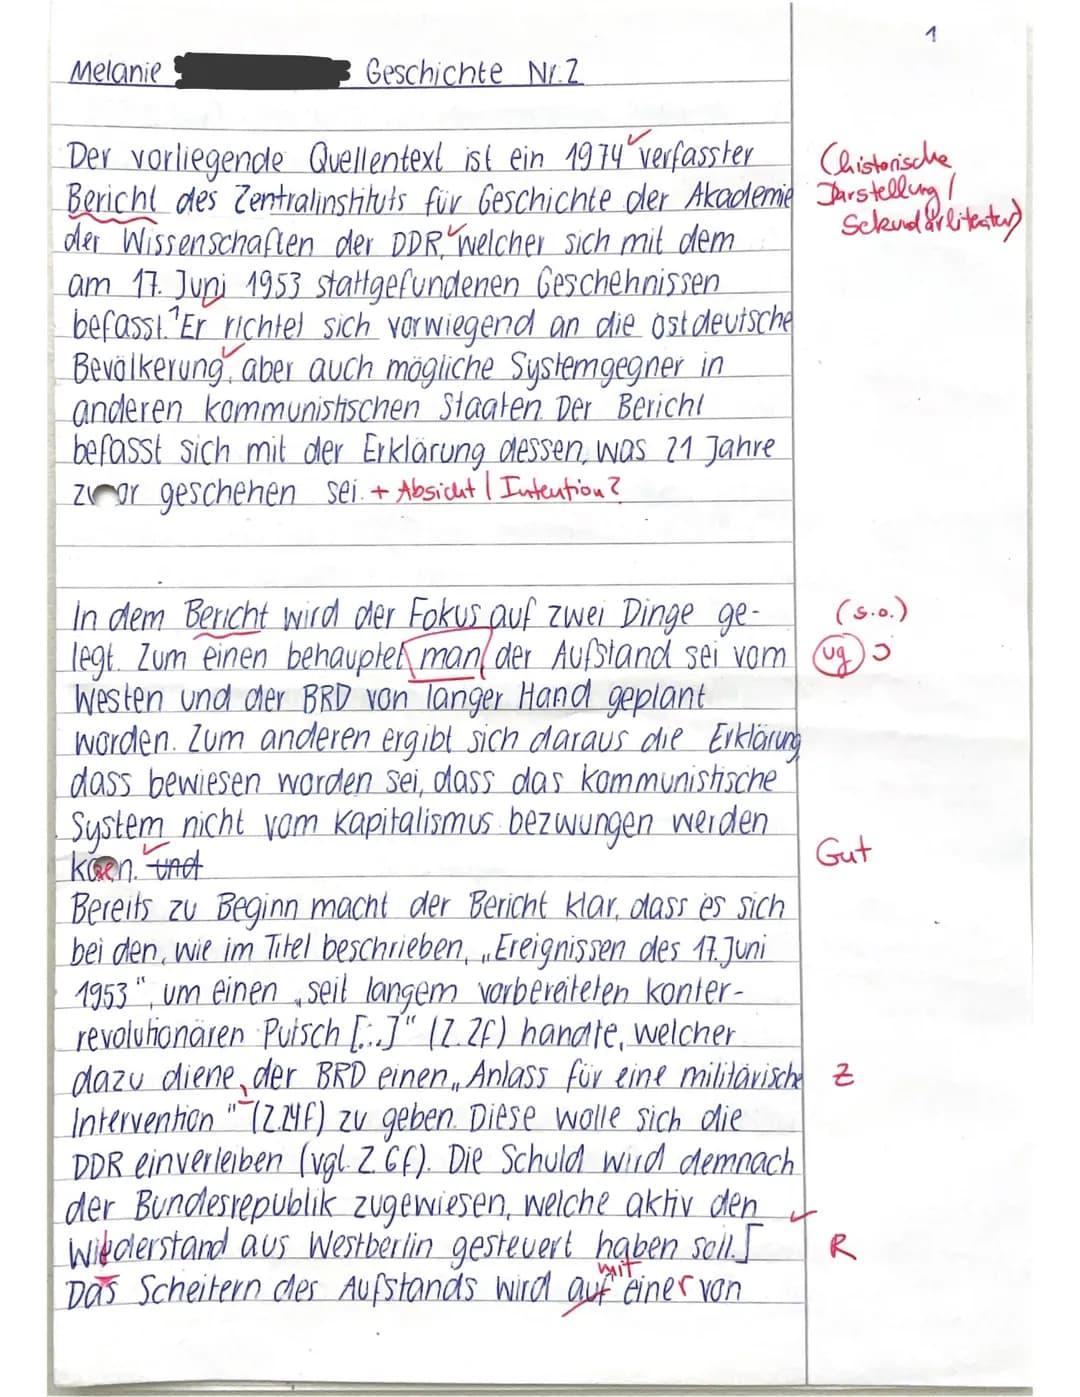 1
Melanie Geschichte Nr. 2
Der vorliegende Quellentext ist ein 1974 verfasster
(historische
Bericht des Zentralinstituts für Geschichte der Akademie
Darstellung /
der Wissenschaften der DDR, welcher sich mit dem
Sekundärliteratur)
am 17. Juni 1953 stattgefundenen Geschehnissen
befasst. Er richtet sich vorwiegend an die ostdeutsche
Bevölkerung, aber auch mögliche Systemgegner in
anderen kommunistischen Staaten. Der Bericht
befasst sich mit der Erklärung dessen, was 21 Jahre
zuvor geschehen sei. + Absicht / Intention?
In dem Bericht wird der Fokus auf zwei Dinge ge-
(s.o.)
legt. Zum einen behauptet man, der Aufstand sei vom
ug
Westen und der BRD von langer Hand geplant
worden. Zum anderen ergibt sich daraus die Erklärung
dass bewiesen worden sei, dass das kommunistische
System nicht vom Kapitalismus bezwungen werden
Gut
und
Bereits zu Beginn macht der Bericht klar, dass es sich
bei den, wie im Titel beschrieben, „Ereignissen des 17. Juni
1953", um einen „seit langem vorbereiteten konter-
revolutionären Putsch [...]" (Z. 2f) handle, welcher
dazu diene, der BRD einen „Anlass für eine militärische
Z
Intervention" (Z.24f) zu geben. Diese wolle sich die
DDR einverleiben (vgl. Z. 6f). Die Schuld wird demnach
der Bundesrepublik zugewiesen, welche aktiv den
Widerstand aus Westberlin gesteuert haben soll.
R
mit
Das Scheitern des Aufstands wird auf einer von